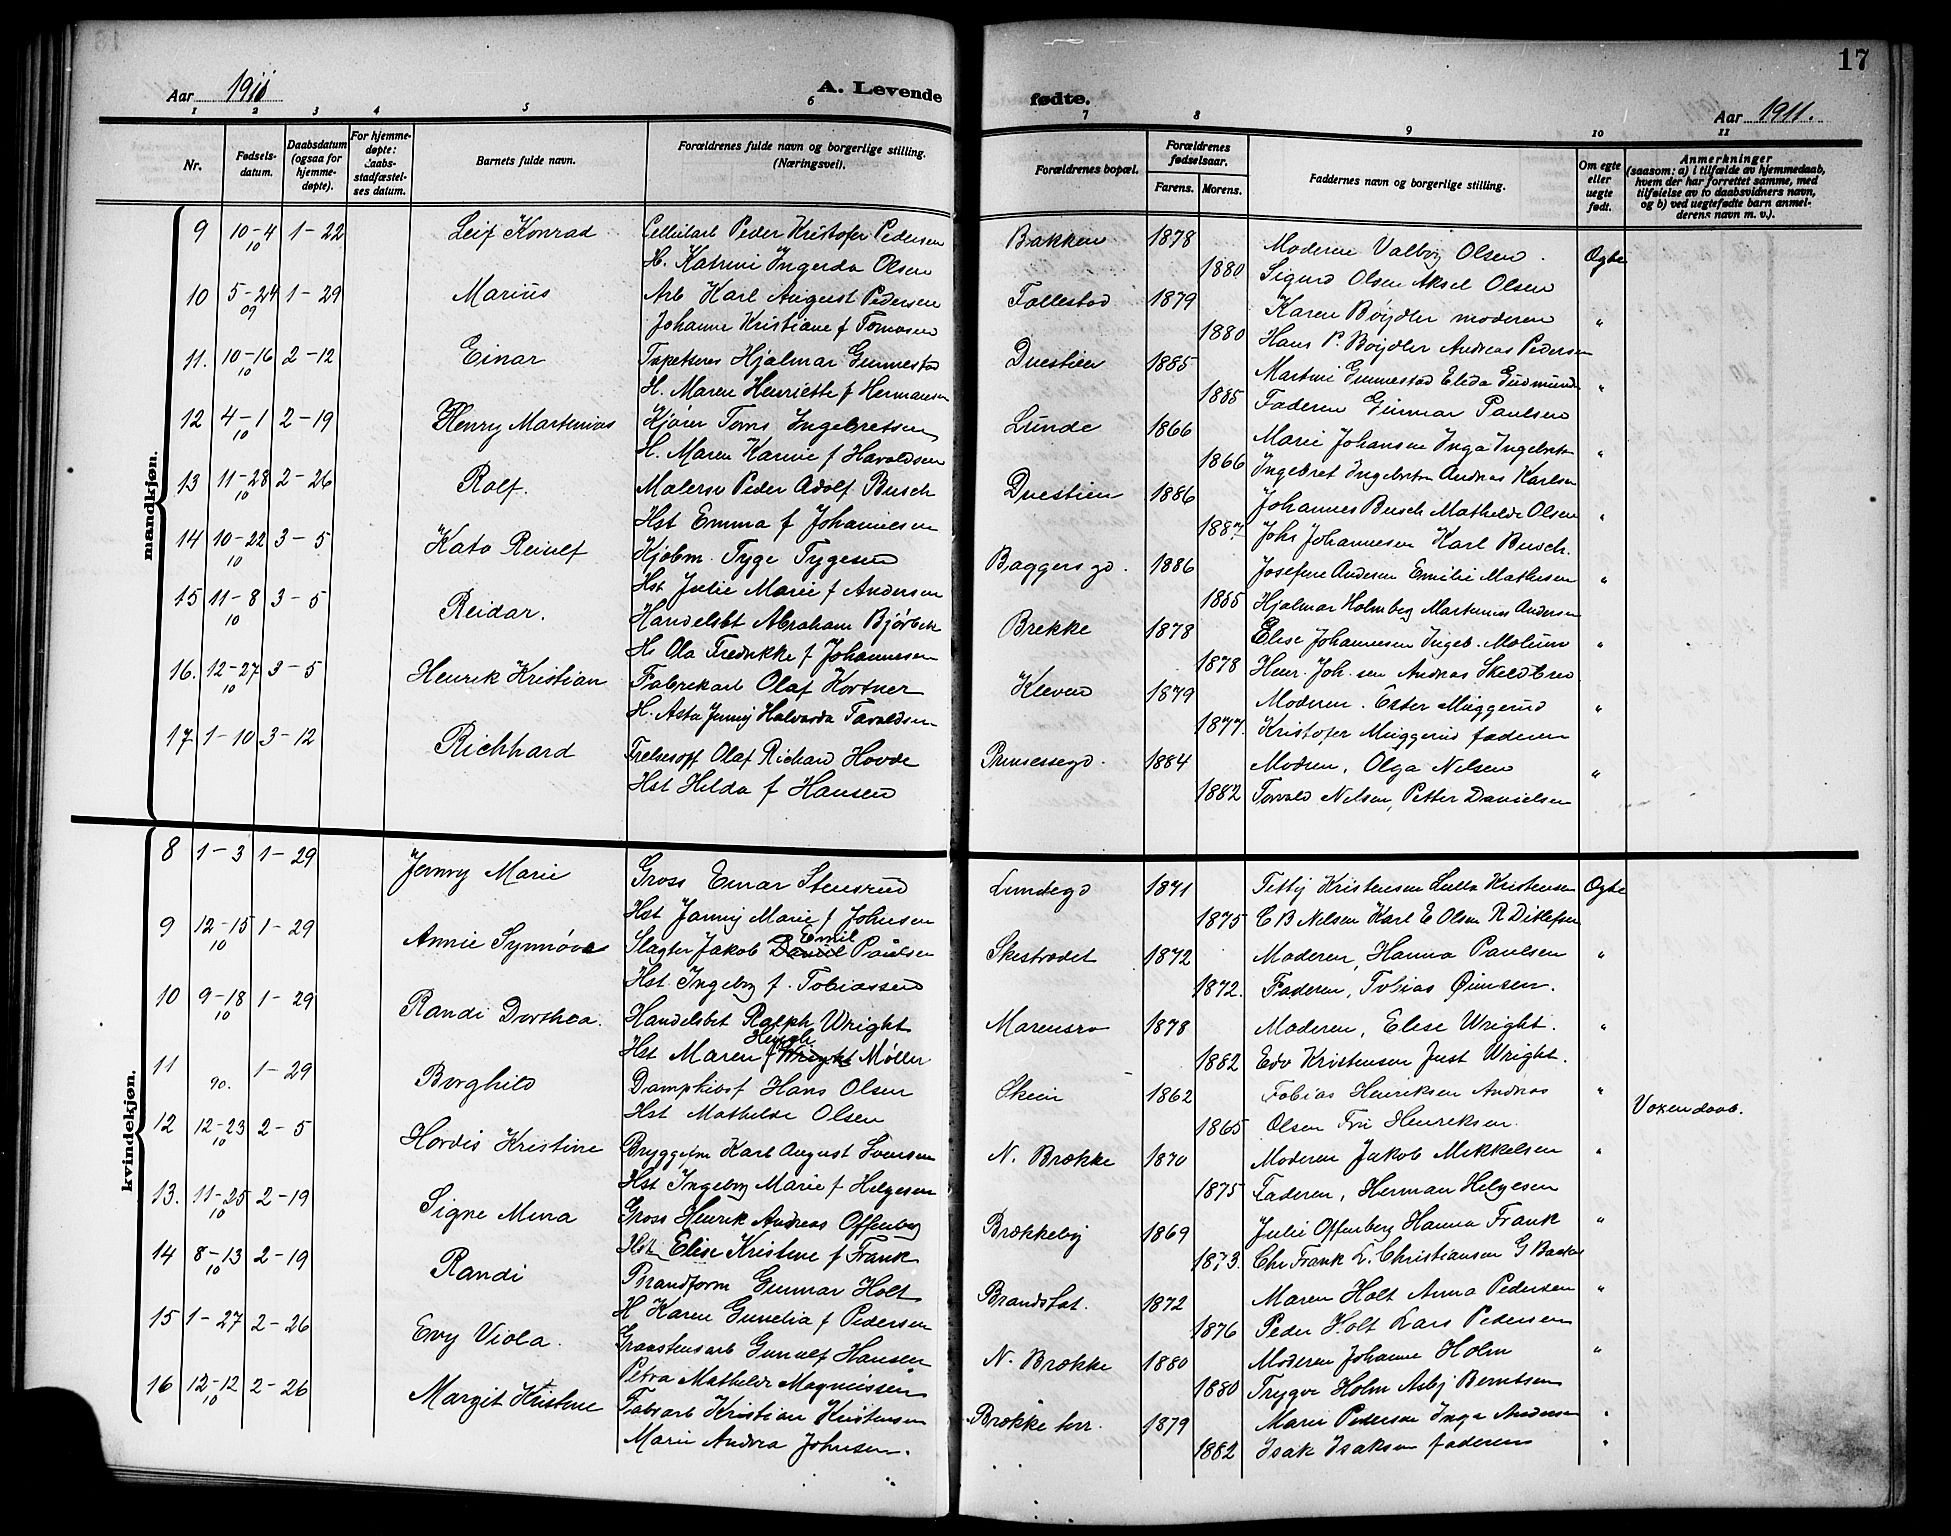 17
Aar 1911
A. Levende fødte.
Aar 1911.
1 2 3 4 5 6 7 8 9 10 11
Nr.
Fødsels-datum.
Daabsdatum (ogsaa for hjemme-døpte).
For hjemme-døpte: Daabs-stadfæstel-ses datum.
Barnets fulde navn.
Forældrenes fulde navn og borgerlige stilling. (Næringsvei).
Forældrenes bopæl.
Forældrenes fødselsaar.
Farens. Morens.
Faddernes navn og borgerlige stilling.
Om egte eller uegte født.
Anmerkninger
(saasom: a) i tilfælde av hjemmedaab,
hvem der har forrettet samme, med
tilføielse av to daabsvidners navn,
og b) ved uegtefødte barn anmel-
derens navn m. v.).
mandkjøn.
9 10-4 10 1-22 Leif Konrad Peder Kristofer Pedersen Bakken 1878 Moderen Valborg Olsen. Egte
H. Katrine Ingerda Olsen 1880 Sigurd Olsen Aksel Olsen
10 5-24 09 1-29 Marius Arb Karl August Pedersen Follestad 1879 Karen Bøijdler moderen "
Johanne Kristiane f Tomasen 1880 Hans P. Bøijdler Andreas Pedersen
11. 10-16 10 2-12 Einar Tapetseres Hjalmar Gunnestad Duestien 1885 Martini Gunnestad Elida Gudmund "
H. Maren Henriette f Hermansen 1885 Faderen Gunnar Paulsen
12 4-1 10 2-19 Henry Martinius Kjører Toms Ingebretsen Lunde 1866 Marie Johansen Inga Ingebrets "
H. Maren Karine f Havaldsen 1866 Ingebret Ingebretsen Andreas Karlsen
13 11-28 10 2-26 Rolf. Malersv Peder Adolf Busch Duestien 1886 Johannes Busch Mathilde Olsen "
Hst Emma f Johannesen 1887 Johs Johannesen Karl Busch.
14 10-22 10 3-5 Kato Reiulf Kjøbm. Tyge Tygesen Baggers gd. 1886 Josefine Andersen Emilie Mathisen "
Hst Julie Marie f Andersen 1885 Hjalmar Holmberg Martinius Andersen
15 11-8 10 3-5 Reidar. Handelsbt Abraham Bjørbæk Brekke 1878 Elise Johannesen Ingeb. Molum "
H. Ola Fredrikke f Johannesen 1878 Henr. Joh.sen Andreas Skeldbred
16. 12-27 10 3-5 Henrik Kristian Fabrikarb Olaf Kortner Kleven 1879 Moderen. Ester Muggerud "
H. Asta Jenny Halvarda Taraldsen 1877. Kristofer Muggerud faderen
17 1-10 3-12 Richhard Frelsesoff Olaf Richard Hovde Prinsessegd. 1884 Modren, Olga Nilsen "
Hst Hilda f Hansen 1882 Torvald Nilsen, Petter Danielsen
kvindekjøn.
8 1-3 1-29 Jenny Marie Gross Einar Stensrud Lundegd 1871 Kristensen Lulla Kristensen Egte
Hst Jenny Marie f Johnsen 1875 C B Nilsen Karl E Olsen R Ditlefsen
9 12-15 10 1-29 Annie Synnøve Slagter Jakob Daniel Emil Paulsen Skistredet 1872 Moderen, Hanna Paulsen "
Hst. Ingeborg f. Tobiassen 1872. Faderen, Tobias
10 9-18 10 1-29 Randi Dorthea. Handelsbet Ralph Wright Marensro 1878 Moderen, Elise Wright. "
Hst Maren f Wright Møller 1882 Edv Kristensen Just Wright.
11 90. 1-29 Borghild Dampskibsf Hans Olsen Skien 1862 Tobias Henriksen Andreas "
Hst Mathilde Olsen 1865 Olsen Henriksen. Voxen daab.
12 12-23 10 2-5 Hordis Kristine Karl August Svensen N. Brække 1870 Moderen Jakob Mikkelsen "
Hst Ingeborg Marie f Helgesen 1875 Faderen, Herman Helgesen
13. 11-25 10 2-19 Signe Mina Gross Henrik Andreas Offenberg Brækkebÿ 1869 Julie Offenberg Hanna Frank "
Hst Elise Kristine f Frank 1873. Chr Frank L. Christiansen G Backe
14 8-13 10 2-19 Randi Brandform Gunnar Holt Brandstat. 1872 Maren Holt Anna Pedersen "
H Karen Gunelia f Pedersen 1876 Peder Holt Lars Pedersen
15 1-27 2-26 Evy Viola. Graastensarb Gunulf Hansen N. Brække 1880 Moderen Johanne Holm "
Petra Mathilde Magnussen 1880 Trygve Holm Asbj Berntsen
16 12-12 10 2-26 Margit Kristine Fabrarb Kristian Kristensen Brække terr. 1879 Marie Pedersen Inga Andersen "
Marie Andrea Johnsen. 1882 Isak Isaksen faderen "